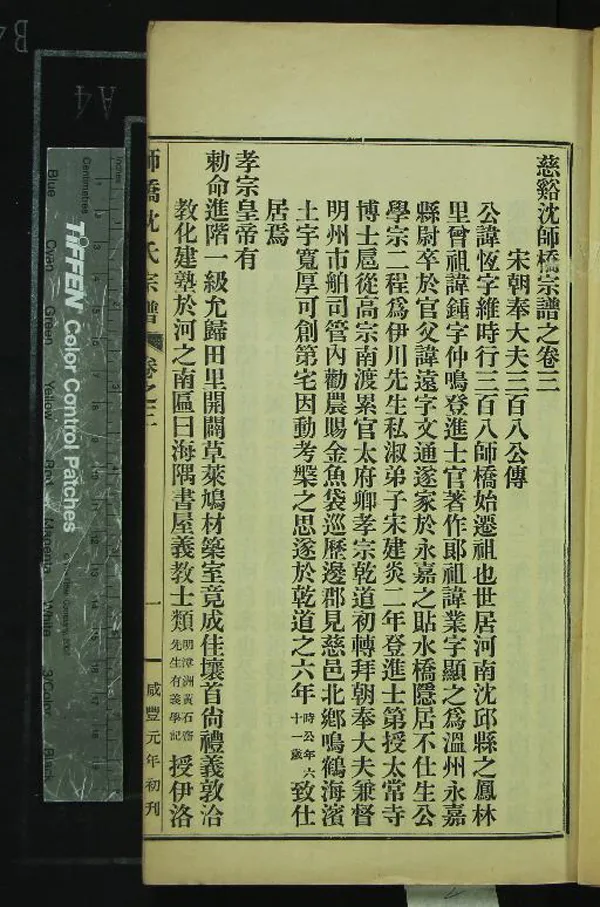 慈谿沈師橋宗譜之卷三
宋朝奉大夫三百八公傳
公諱恆字維時行三百八師橋始遷祖也世居河南沈邱縣之鳳林
里曾祖諱鍾字仲鳴登進士官著作郎祖諱業字顯之爲溫州永嘉
縣尉卒於官父諱遠字文通遂家於永嘉之貼水橋隱居不仕生公
學宗二程爲伊川先生私淑弟子宋建炎二年登進士第授太常寺
博士扈從高宗南渡累官太府卿孝宗乾道初轉拜朝奉大夫兼督
明州市舶司管內勸農賜金魚袋巡歷邊郡見慈邑北鄉鳴鶴海濱
土宇寬厚可創第宅因動考槃之思遂於乾道之六年時公年六十一歲致仕
居焉
孝宗皇帝有
勅命進階一級允歸田里開闢草萊鳩材築室竟成佳壤首尚禮義敦洽
教化建塾於河之南區曰海隅書屋義教士類明漳洲黃石齋先生有義學記授伊洛
師橋沈氏宗譜 卷之三 一 咸豐元年初刊
TIFFEN Color Control Patches
Inches
Centimetres
Blue
Cyan
Green
Yellow
Red
Magenta
White
3/Color
Black
A4